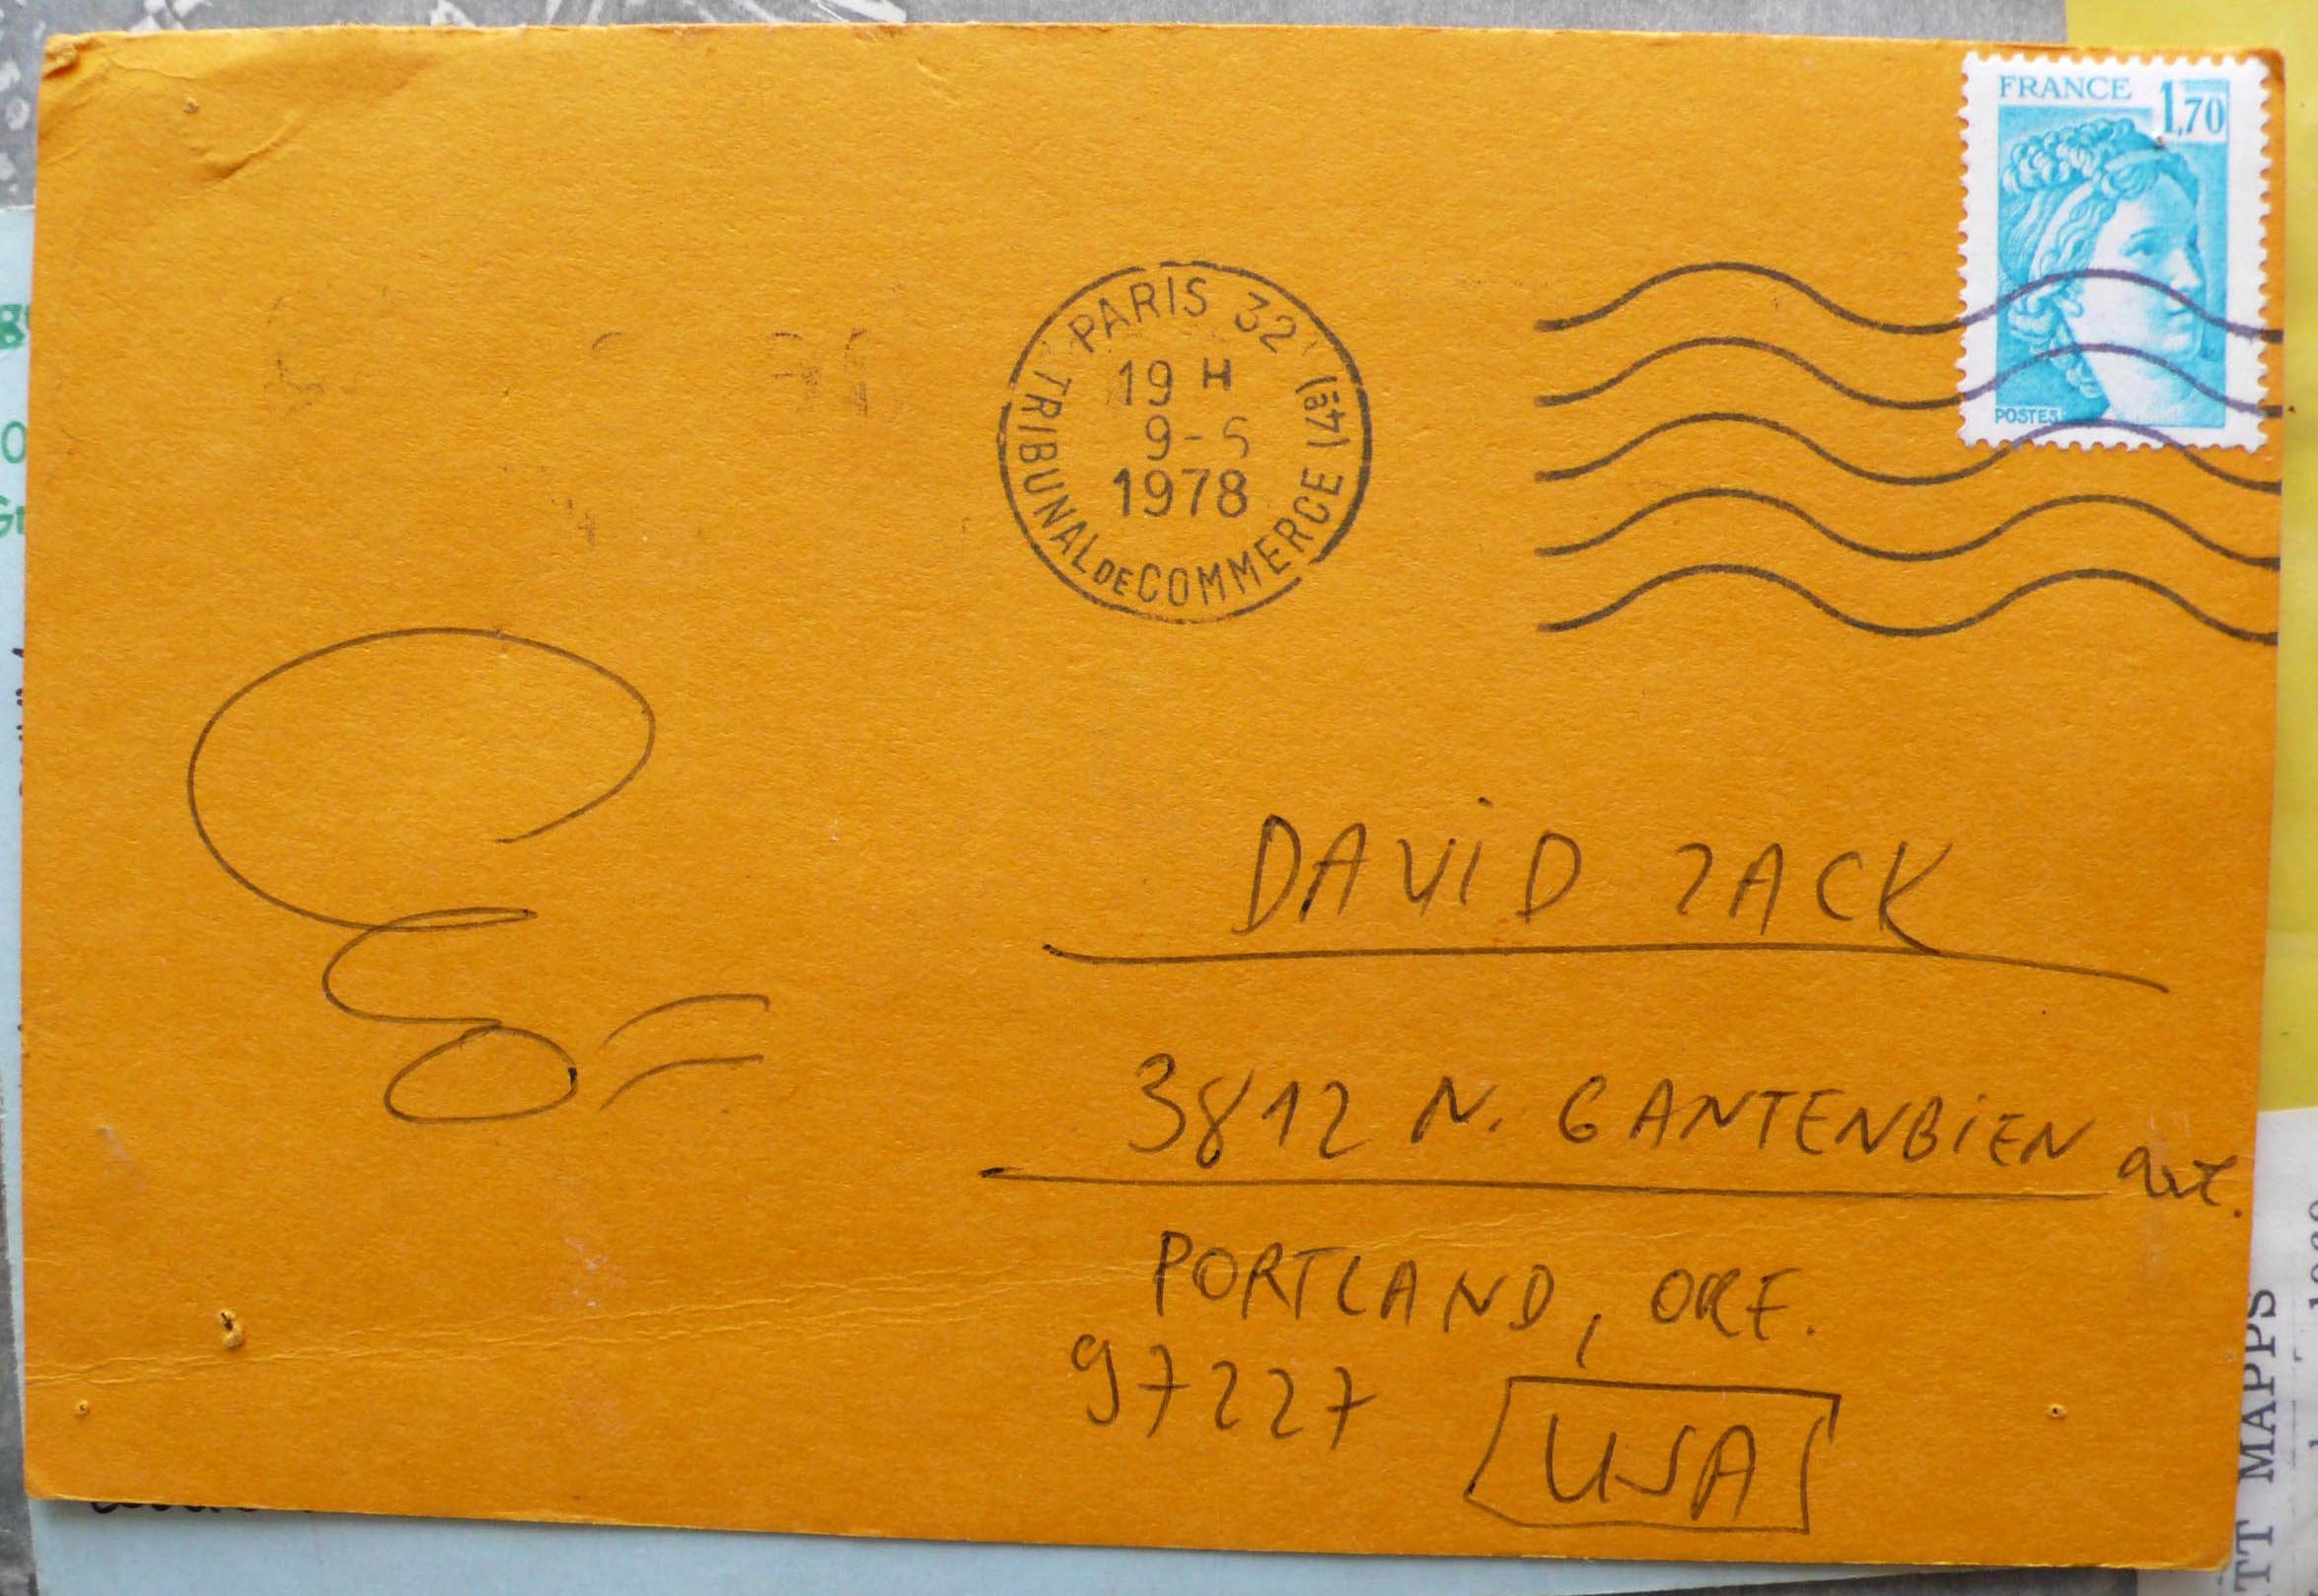 FRANCE 1,70
POSTES
PARIS 32 (4è)
19 H
9-5
1978
TRIBUNAL DE COMMERCE
DAViD ZACK
3812 N. GANTENBiEN
PORTLAND, ORE.
97227
USA
TT MAPPS